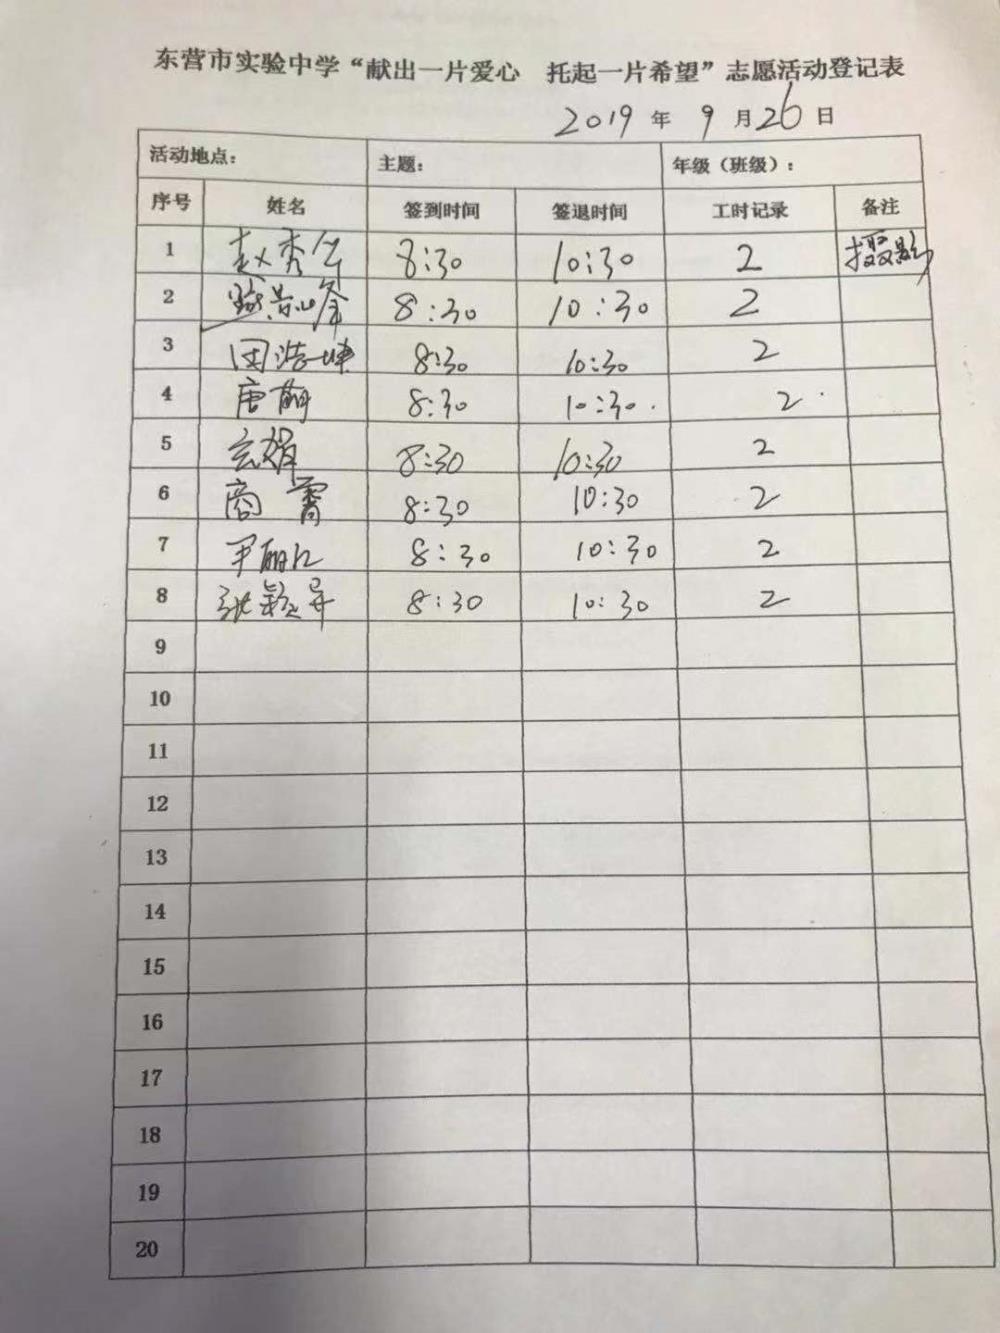 东营市实验中学“献出一片爱心 托起一片希望”志愿活动登记表
2019 年 9 月 26 日
活动地点： 主题： 年级（班级）：
序号 姓名 签到时间 签退时间 工时记录 备注
1 赵秀 8:30 10:30 2 摄影
2 8:30 10:30 2
3 田浩坤 8:30 10:30 2
4 唐丽 8:30 10:30 2
5 玄娟 8:30 10:30 2
6 商蕾 8:30 10:30 2
7 尹丽江 8:30 10:30 2
8 张 8:30 10:30 2
9
10
11
12
13
14
15
16
17
18
19
20